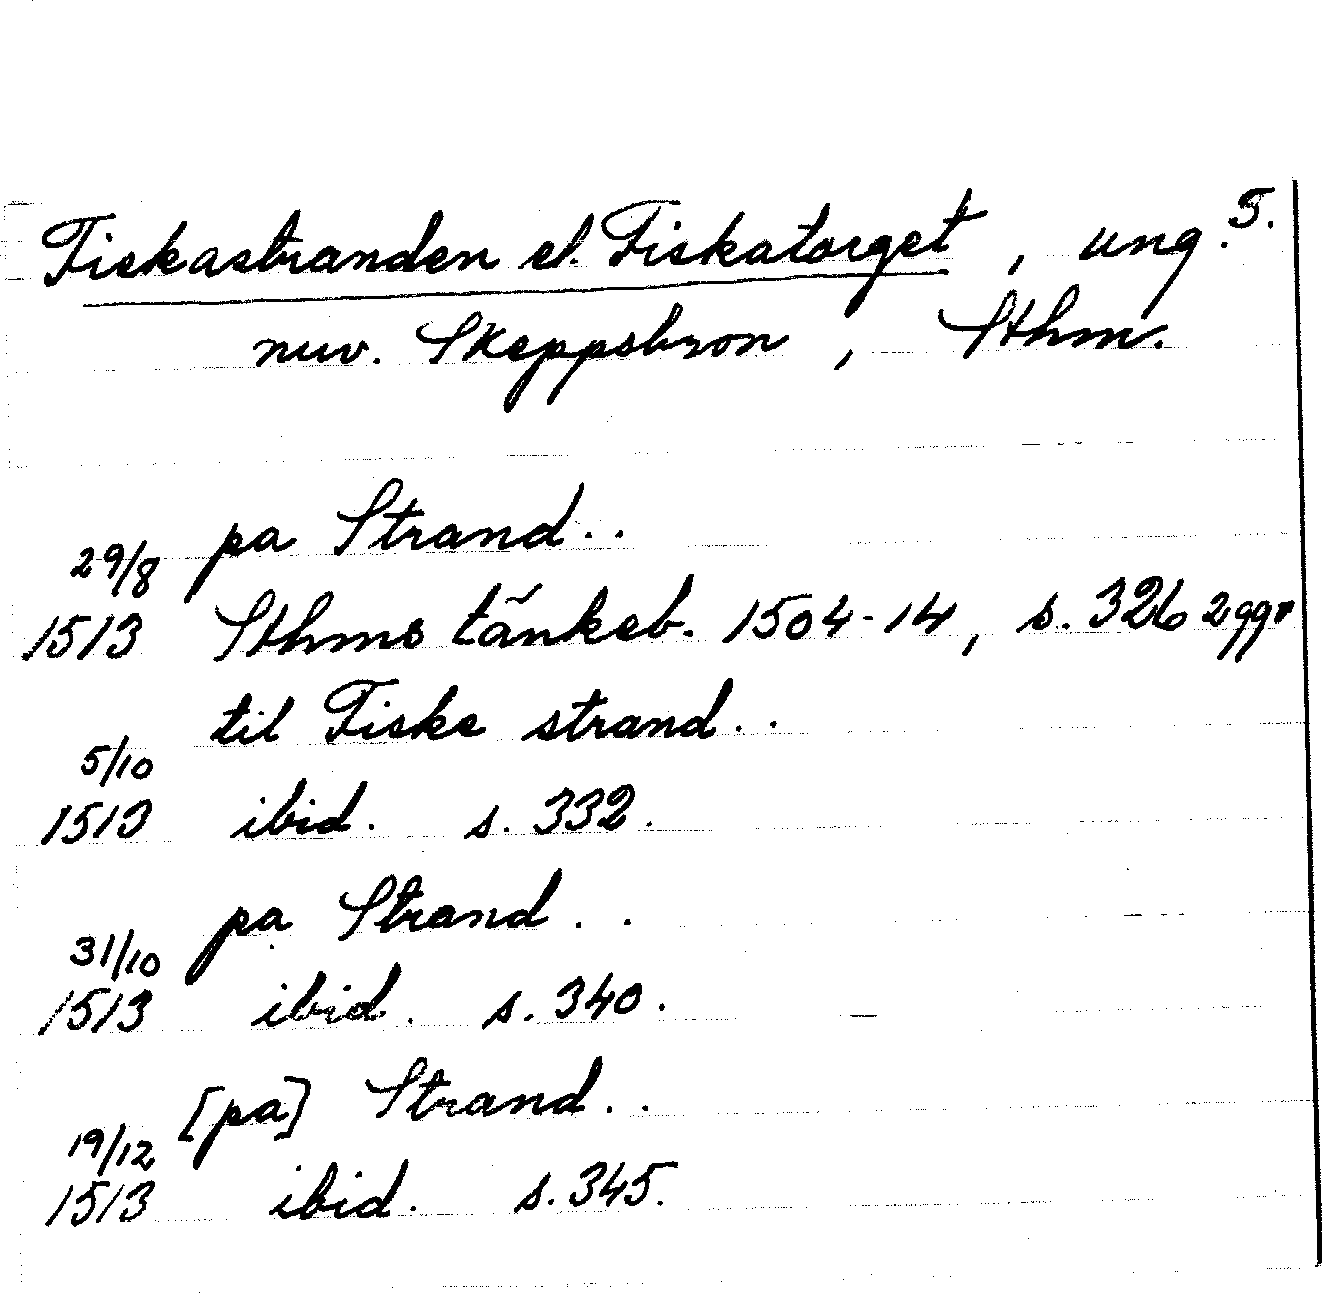 5.
Fiskastranden el. Fiskatorget, ung.
nuv. Skeppsbron, Sthm.
pa Strand..
29/8
1513 Sthms tänkeb. 1504-14, s. 326 2 ggr
til Fiske strand..
5/10
1513 ibid. s. 332.
pa Strand..
31/10
1513 ibid. s. 340.
[pa] Strand..
19/12
1513 ibid. s. 345.